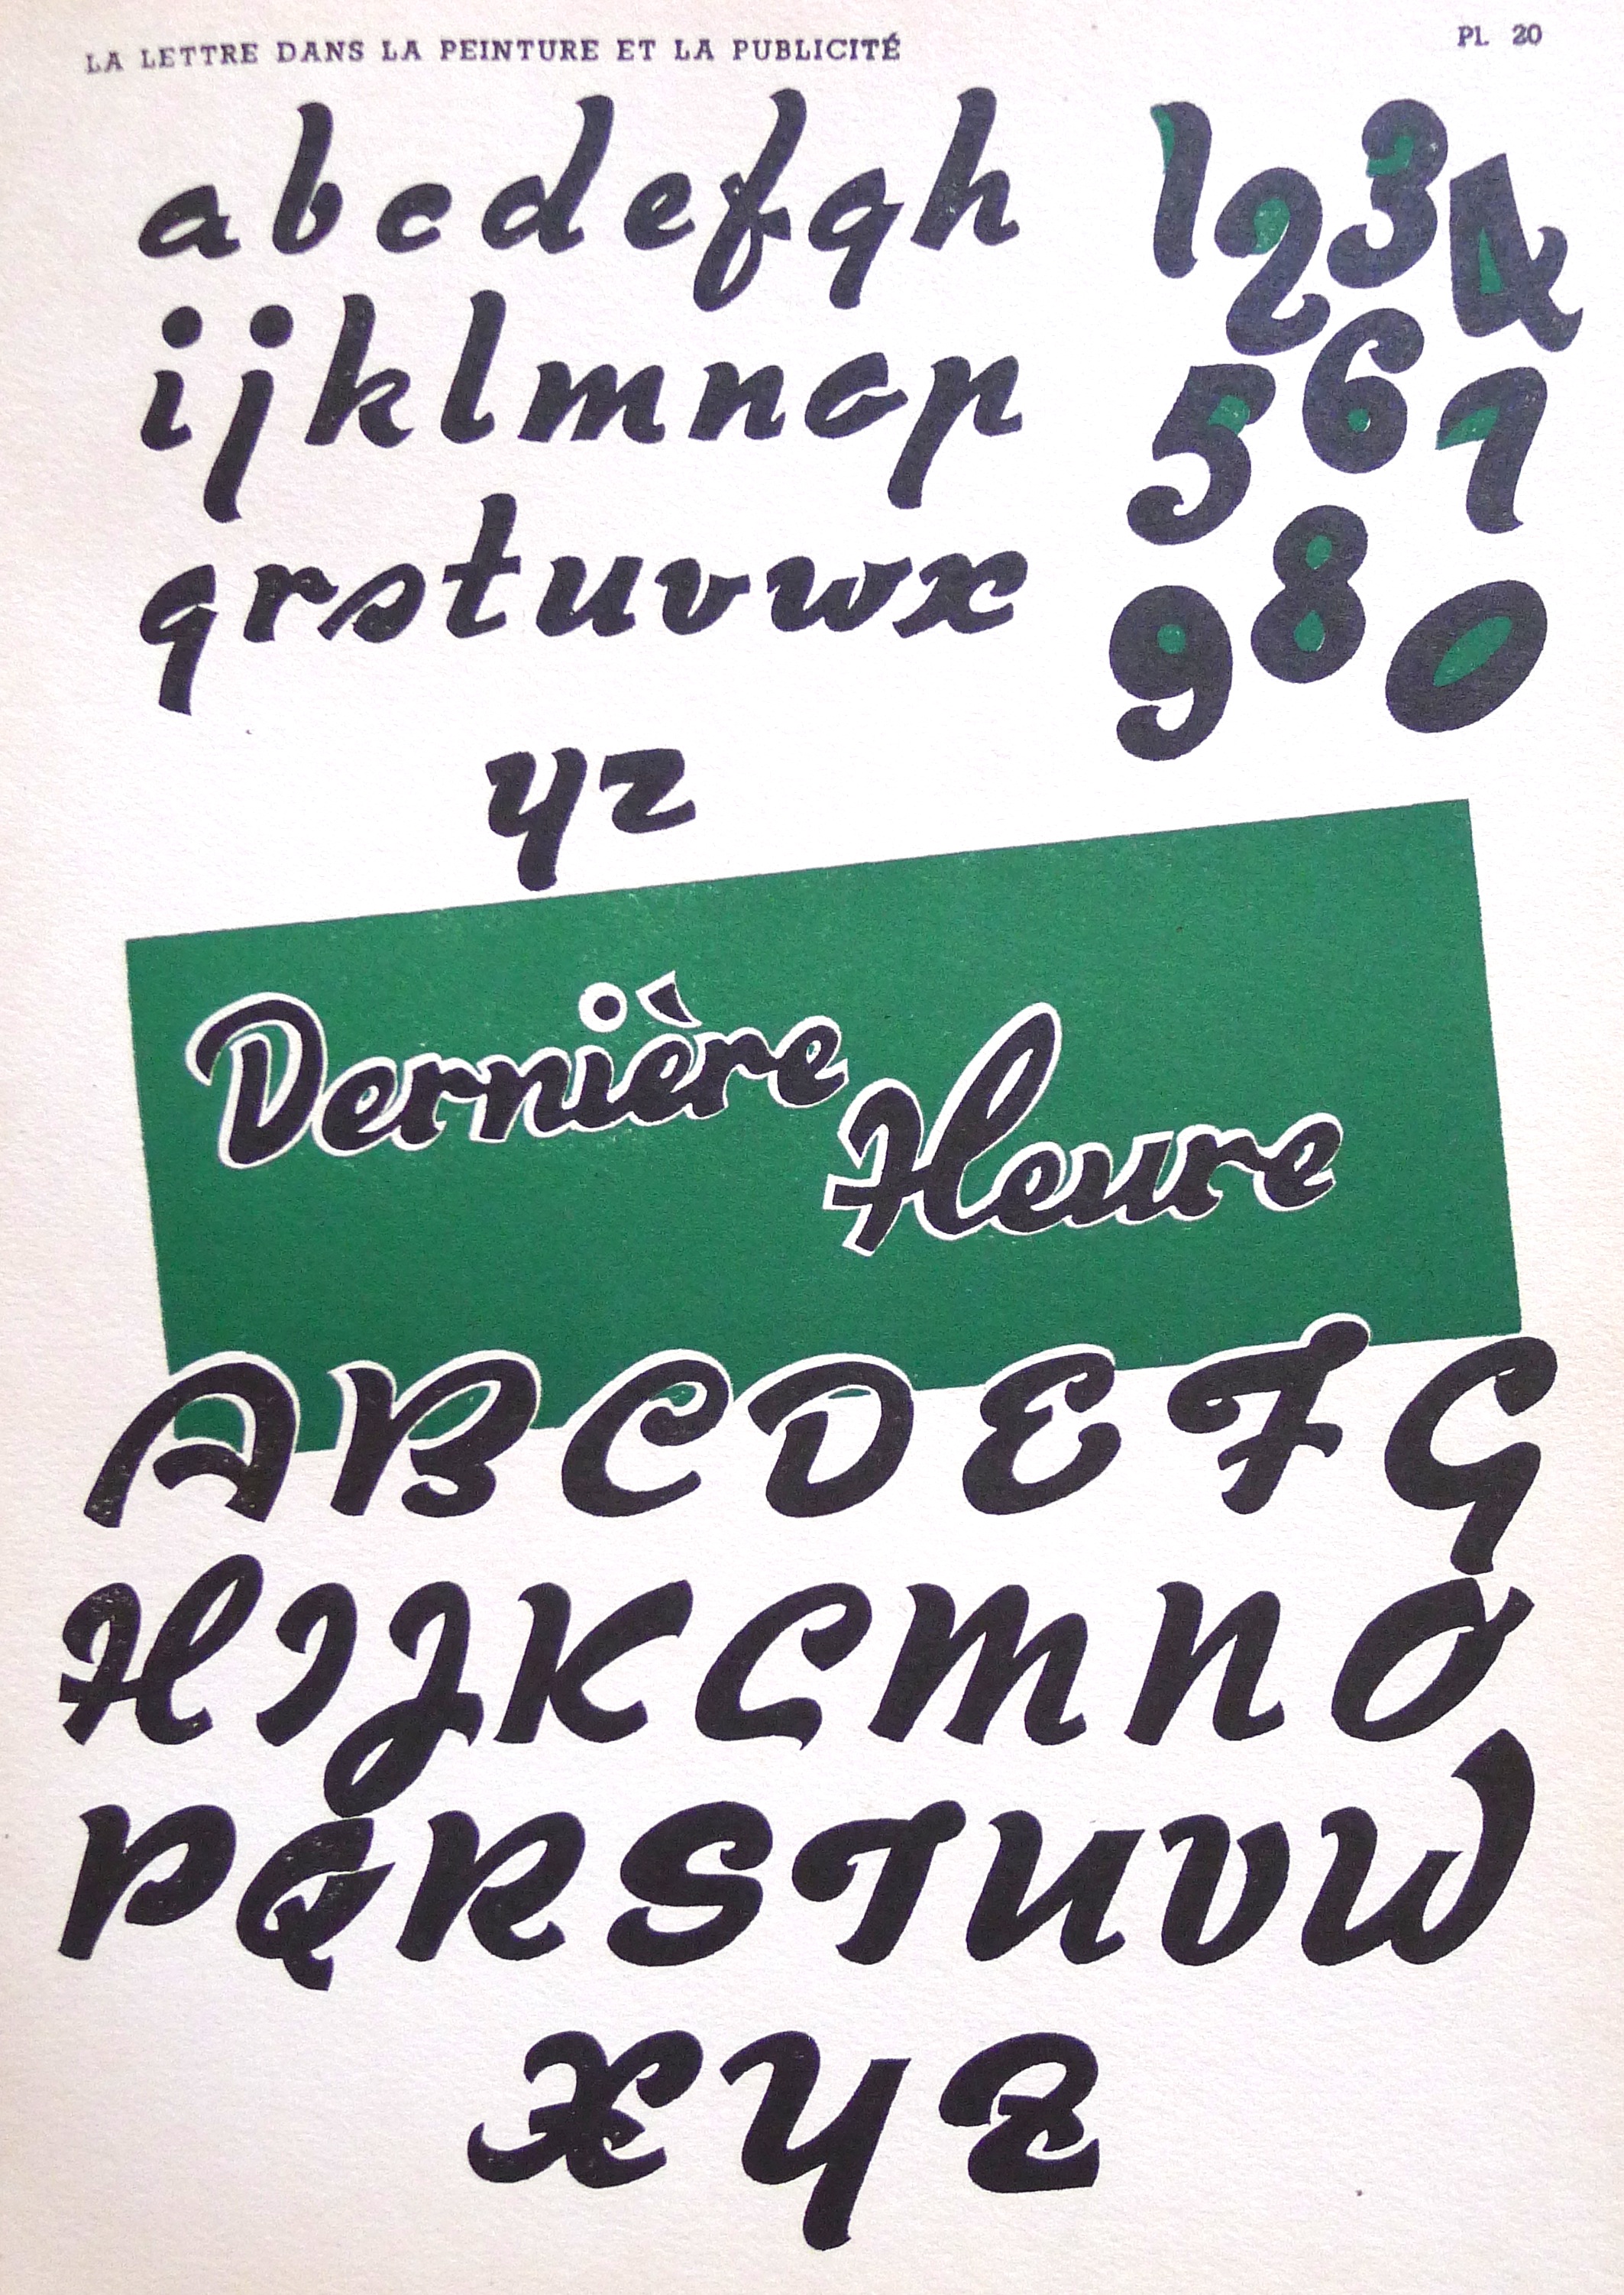 LA LETTRE DANS LA PEINTURE ET LA PUBLICITÉ
Pl. 20
abcdefgh
ijklmnop
qrstuvwx
yz
1234
567
980
Dernière
Heure
ABCDEFG
HIJKLMNO
PQRSTUVW
XYZ